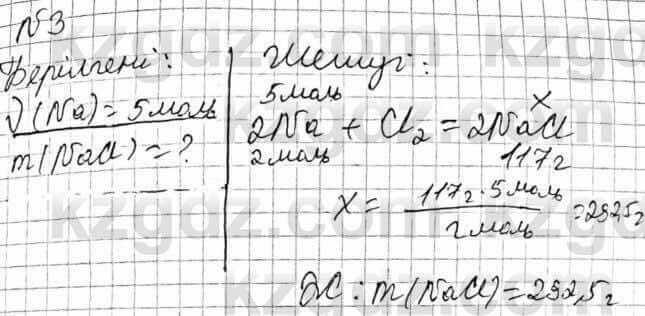 №3
Берілгені:
ν(Na) = 5 моль
m(NaCl) = ?
Шешуі:
5 моль x
2Na + Cl₂ = 2NaCl
2 моль 117 г
x = 117 г · 5 моль / 2 моль = 292,5 г
Ж: m(NaCl) = 292,5 г
kzgdz.com